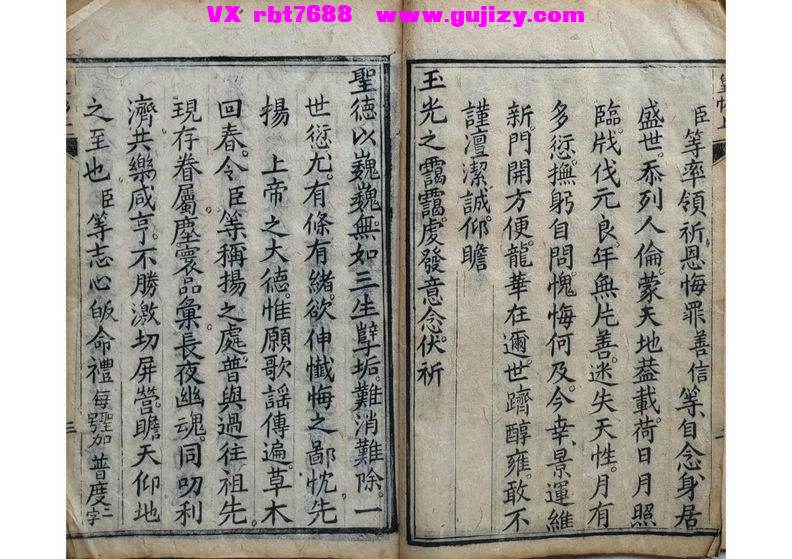 VX rbt7688 www.gujizy.com
臣等率領祈恩悔罪善信等自念身居
盛世。忝列人倫。蒙天地蓋載。荷日月照
臨。戕伐元良。年無片善。迷失天性。月有
多愆。撫躬自問。愧悔何及。今幸景運維
新。門開方便。龍華在邇。世躋醇雍。敢不
謹壇潔誠。仰瞻
玉光之靄靄。虔發意念。伏祈
聖德以巍巍。無如三生孽垢。難消難除。一
世愆尤。有條有緒。欲伸懺悔之鄙忱。先
揚 上帝之大德。惟願歌謠傳遍。草木
回春。令臣等稱揚之處。普與過往祖先。
現存眷屬。塵寰品彙。長夜幽魂。同叨利
濟。共樂咸亨。不勝激切屏營。瞻天仰地
之至也。臣等志心皈命禮 每聖號加普度二字